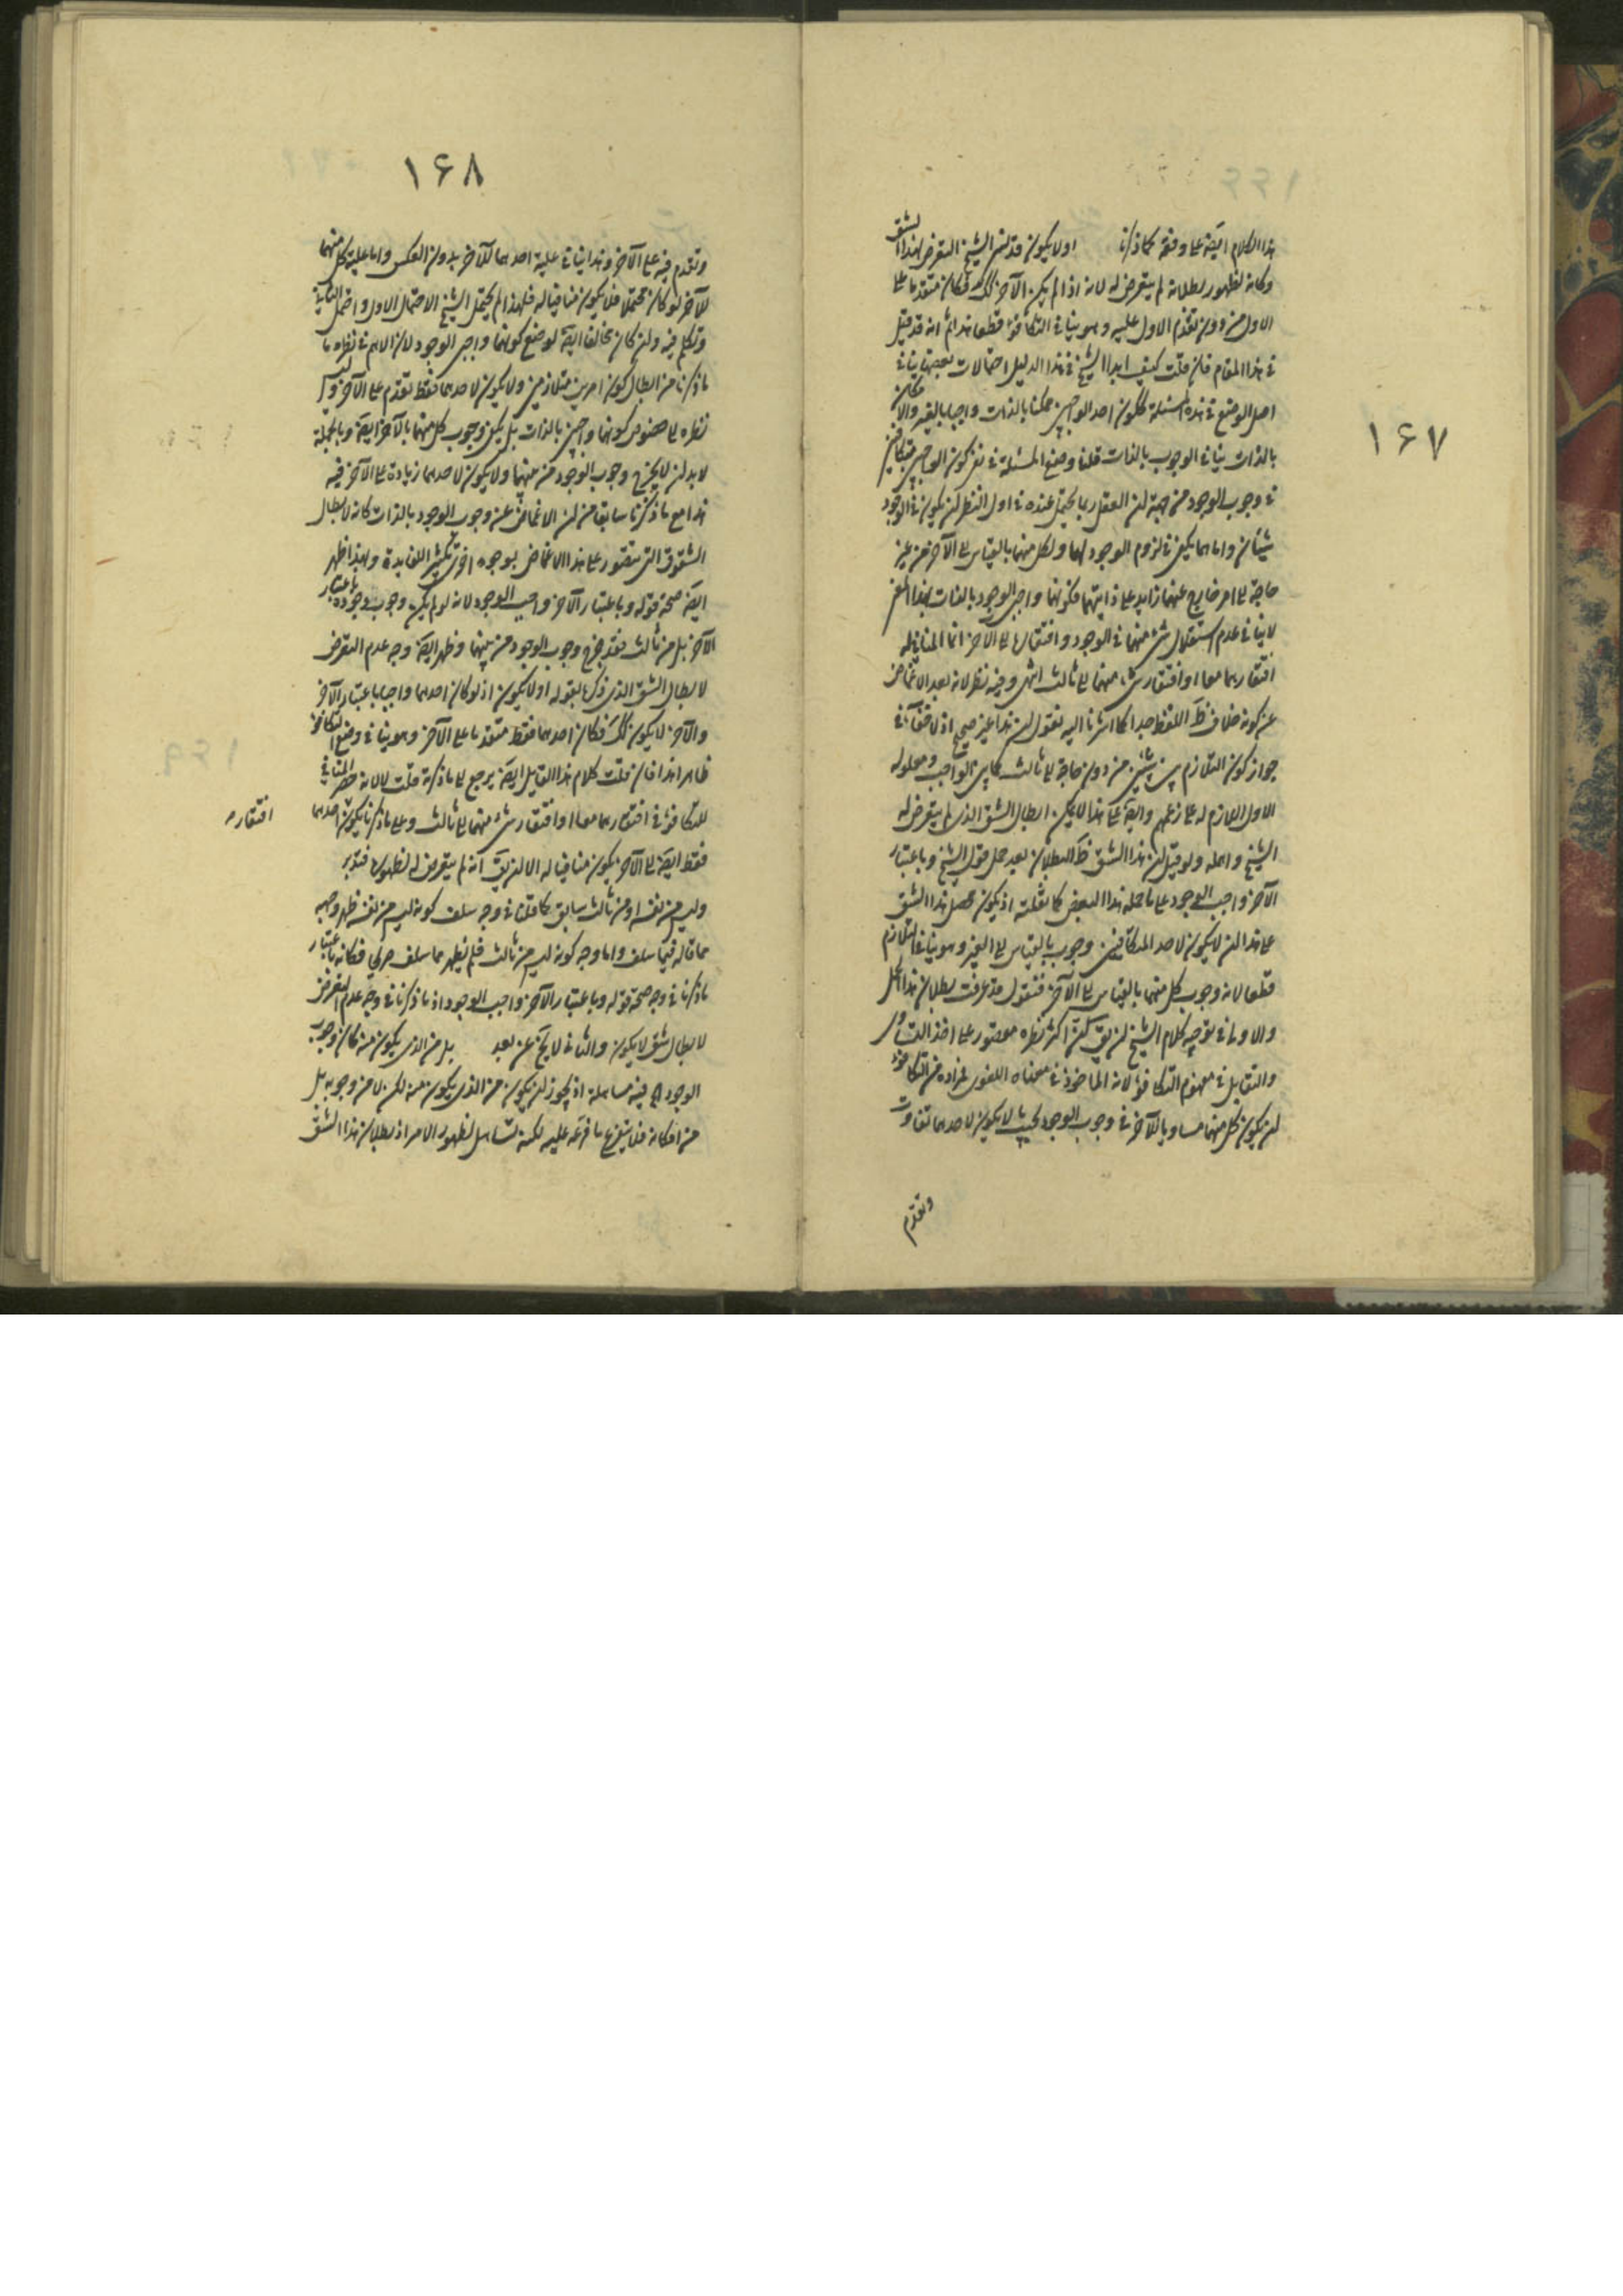 ۱۶۷
هذا الكلام ايضا على وفقه كما ذكرنا اولا يكون قد لنسى الشيخ التعرض لهذا الشق
وكانه لظهور بطلانه لم يتعرض له لانه اذا لم يكن الآخر كك فكان متقدما على
الاول من دون تقدم الاول عليه وهو ينافى التكافؤ قطعا هذا ثم انه قد قيل
فى هذا المقام فان قلت كيف ابدا الشيخ فى هذا الدليل احتمالات بعضها ينافى
اصل الوضع فى هذه المسئلة ككون احد الواجبين ممكنا بالذات واجبا بالغير والامكان
بالذات ينافى الوجوب بالذات قلنا وضع المسئلة فى نفى كون الواجبين متكافئين
فى وجوب الوجود من جهة ان العقل ربما يحتمل عنده فى اول النظر ان يكون فى الوجود
شيئان واما هما يكفى فى لزوم الوجود لهما ولكل منهما بالقياس الى الآخر من غير
حاجة الى امر خارج عنهما زايد على ذاتيهما فكونهما واجبى الوجود بالذات بهذا المعنى
لا ينافى عدم استقلال شئ منهما فى الوجود وافتقارها الى الآخر انما المنافى له
افتقارهما معا او افتقار شئ منهما الى ثالث انتهى وفيه نظر لانه بعد الاغماض
عن كونه خلاف ظ اللفظ جدا كما اشرنا اليه نقول ان هذا غير صحيح اذ لا خفاء فى
جواز كون التلازم بين شيئين من دون حاجة الى ثالث كما بين الواجب ومعلوله
الاول اللازم له على زعمهم وايضا على هذا لا يمكن ابطال الشق الذى لم يتعرض له
الشيخ واهمله ولو قيل ان هذا الشق ظ البطلان بعد حمل قول الشيخ وباعتبار
الآخر واجب الوجود على ما حمله هذا البعض كما نقلته اذ يكون محصل هذا الشق
على هذا ان لا يكون لاحد المتكافئين وجوب بالقياس الى الغير وهو ينافى التلازم
قطعا لانه وجوب كل منهما بالقياس الى الآخر فنقول قد عرفت بطلان هذا الحمل
والاولى فى توجيه كلام الشيخ ان يق اكثر نظره مقصور على اخذ التساوى
والتقابل فى مفهوم التكافؤ لانه الماخوذ فى معناه اللغوى فمراده من التكافؤ
ان يكون كل منهما مساويا للآخر فى وجوب الوجود بحيث لا يكون لاحدهما تفاوت
وتقدم
۱۶۸
وتقدم فيه على الآخر وهذا ينافى علية احدهما للآخر بدون العكس واما علية كل منهما
للآخر لو كان محتملا فلا يكون منافيا له فلهذا لم يحتمل الشيخ الاحتمال الاول واحتمل الثانية
وتكلم فيه وان كان مخالفا ايضا لوضع كونهما واجبى الوجود لان الاهم فى نظره ما
ما ذكرنا من ابطال كون امرين متلازمين ولا يكون لاحدهما فقط تقدم على الآخر وليس
نظره الى خصوص كونهما واجبين بالذات بل يكفى وجوب كل منهما بالآخر ايضا وبالجملة
لا بد ان لا يخرج وجوب الوجود من منهما ولا يكون لاحدهما زيادة على الآخر فيه
هذا مع ما ذكرنا سابقا من ان الاغماض عن وجوب الوجود بالذات كانه لابطال
الشقوق التى يتصور على هذا الاغماض بوجوه اخرى تكثيرا للفايدة وبهذا ظهر
ايضا صحة قوله وباعتبار الآخر واجب الوجود لانه لو لم يكن وجوب وجوده باعتبار
الآخر بل من ثالث فقد خرج وجوب الوجود من منهما وظهر ايضا وجه عدم التعرض
لابطال الشق الذى ذكرنا بقوله او لا يكون اذ لو كان احدهما واجبا باعتبار الآخر
والآخر لا يكون كك فكان احدهما فقط متقدما على الآخر وهو ينافى وضع التكافؤ
ظاهرا هذا فان قلت كلام هذا القايل ايضا يرجع الى ما ذكرته قلت لا لانه حصر المنافى
للتكافؤ فى افتقارهما معا او افتقار شئ منهما الى ثالث وعلى ما ذكرنا يكون احدهما
افتقار
فقط ايضا الى الآخر يكون منافيا له الا ان يق انه لم يتعرض له لظهوره فتدبر
وليس من نفسه او من ثالث سابق كما قلنا فى وجه سلف كونه ليس من نفسه ظهر وجهه
مما قاله فيما سلف واما وجه كونه ليس من ثالث فلم يظهر مما سلف صريحا فكانه باعتبار
ما ذكرنا فى وجه صحة قوله وباعتبار الآخر واجب الوجود اذ ما ذكرنا فى وجه عدم التعرض
لابطال شق لا يكون والثانى لا يخ عن بعد بل من الذى يكون منه كان وجوب
الوجود اه فيه مساهلة اذ يجوز ان يكون من الذى يكون منه لكن لا من وجوبه بل
من امكانه فلا يتفرع ما فرعه عليه لكنه تساهل لظهور الامر اذ بطلان هذا الشق